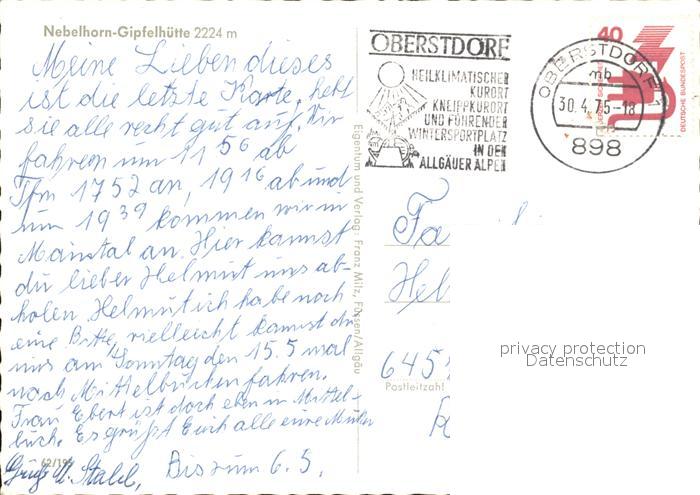 Nebelhorn-Gipfelhütte 2224 m
Meine Lieben dieses
ist die letzte Karte, hebt
sie alle recht gut auf. Wir
fahren um 11 56 ab
Ffm 1752 an, 19 16 ab und
um 19 39 kommen wir in
Maintal an. Hier kannst
du lieber Helmut uns ab-
holen. Helmut ich habe noch
eine Bitte, vielleicht kannst du
uns am Sonntag den 15.5 mal
nach Mittelbuchen fahren.
Frau Ebert ist doch eben in Mittel-
buch. Es grüßt Euch alle eure Mutter
Grüße U. Stahl, Bis zum 6.5.
62/19
Eigentum und Verlag: Franz Milz, Füssen/Allgäu
OBERSTDORF
HEILKLIMATISCHER
KURORT
KNEIPPKURORT
UND FÜHRENDER
WINTERSPORTPLATZ
IN DEN
ALLGÄUER ALPEN
OBERSTDORF 1
mb
30.4.75-18
898
40
DEUTSCHE BUNDESPOST
Fa
Hel
645
Postleitzahl
privacy protection
Datenschutz